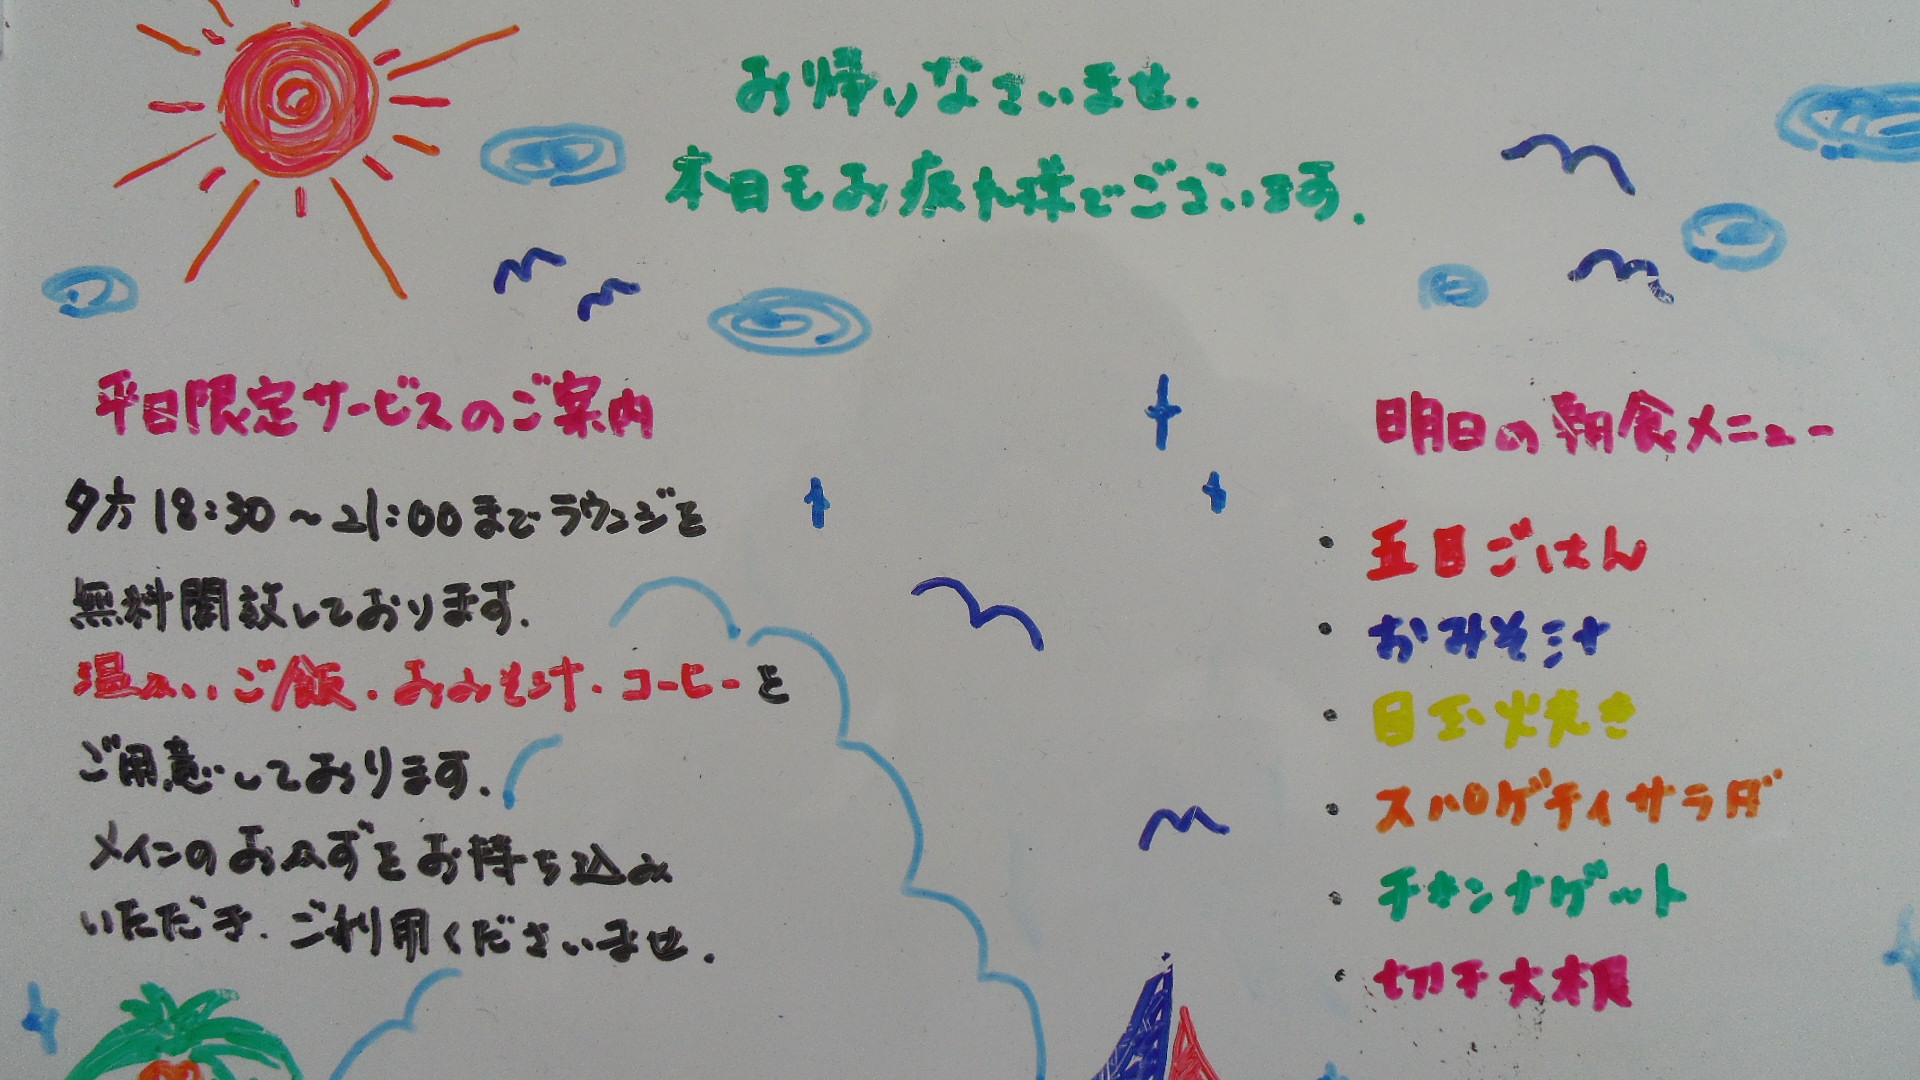 お帰りなさいませ.
本日もお疲れ様でございます.
平日限定サービスのご案内
夕方18:30～21:00までラウンジを
無料開放しております.
温かいご飯・おみそ汁・コーヒーを
ご用意しております.
メインのおかずをお持ち込み
いただき.ご利用くださいませ.
明日の朝食メニュー
・五目ごはん
・おみそ汁
・目玉焼き
・スパゲティサラダ
・チキンナゲット
・切干大根